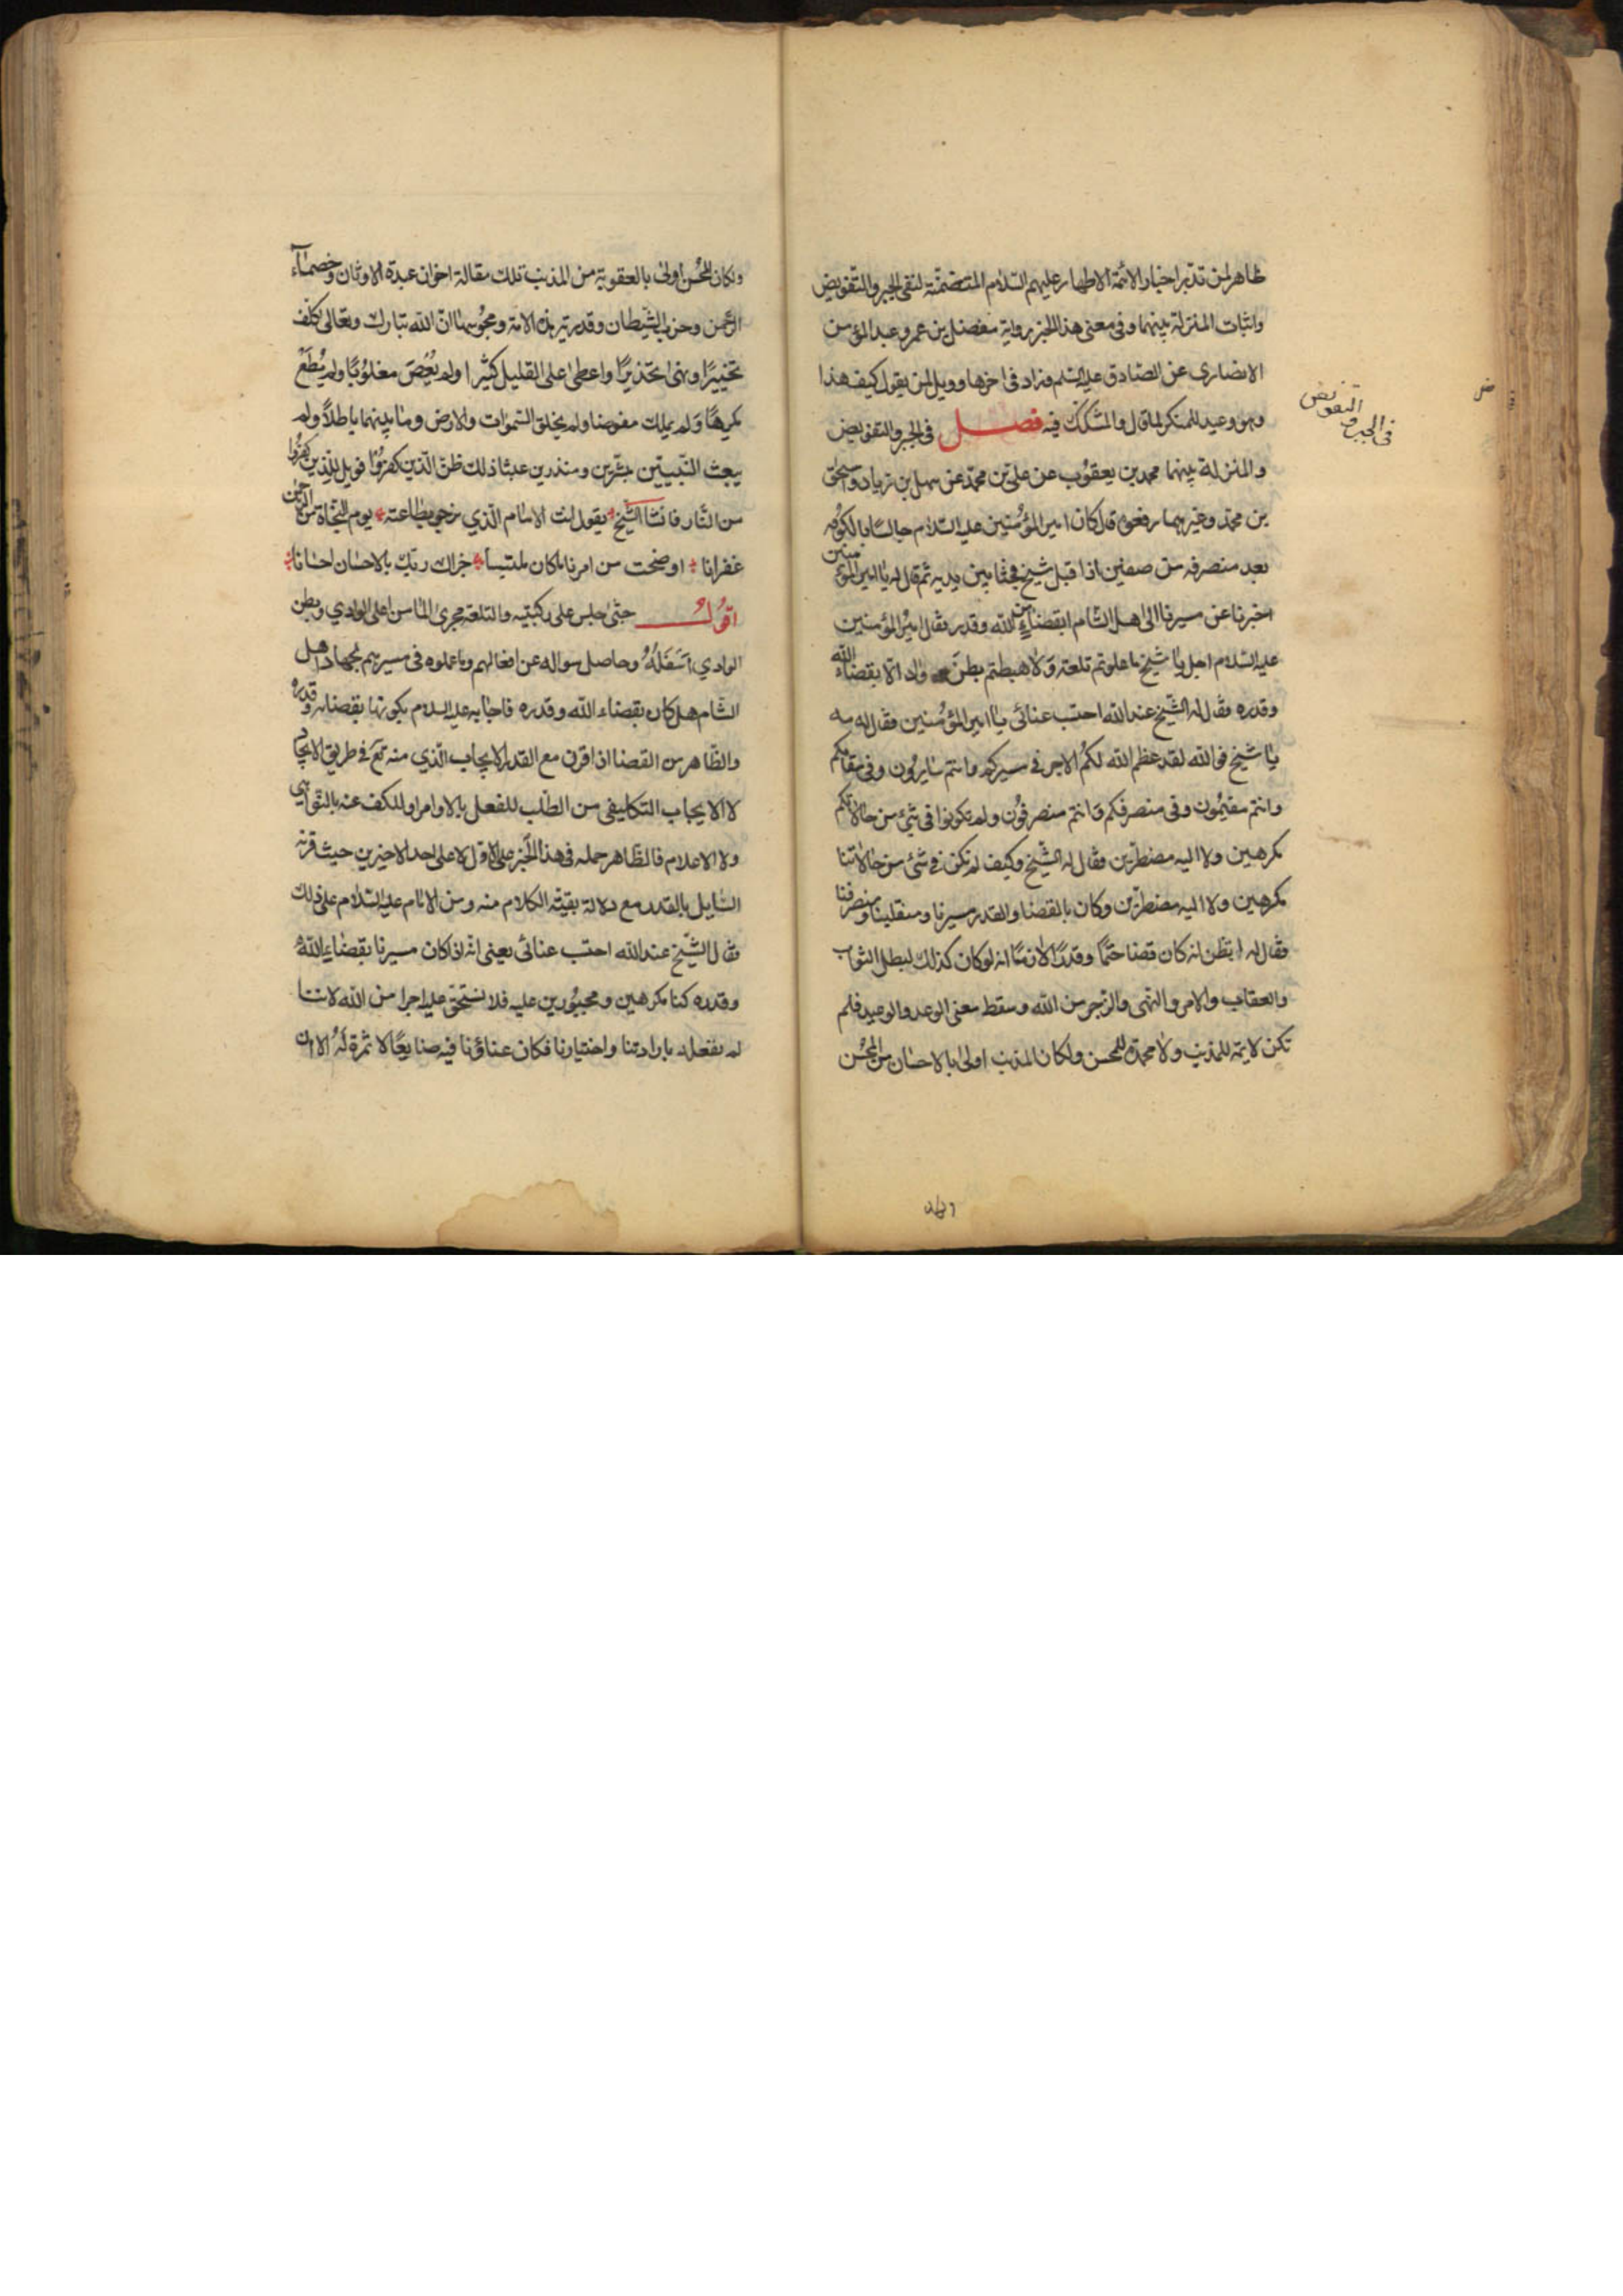 ظاهر لمن تدبر اخبار الائمة الاطهار عليهم السّلام المتضمنّة لنفى الجبر والتّفويض
واثبات المنزلة بينهما وفى معنى هذا الخبر رواية مفضل بن عمر وعبد المؤمن
الانصارى عن الصّادق عليه السّلم وزاد فى اخرها وويل لمن يقول كيف هذا
وهو وعيد للمنكر لما قال والمتشكّك فيه فصل فى الجبر والتفويض
والمنزلة بينهما محمد بن يعقوب عن علىّ بن محمّد عن سهل بن زياد واسحق
بن محمّد وغيرهما رفعوه قال كان امير المؤمنين عليه السّلام جالسًا بالكوفه
بعد منصرفه من صفين اذا اقبل شيخ فجثا بين يديه ثم قال له يا امير المؤمنين
اخبرنا عن مسيرنا الى اهل الشام ابقضاءٍ من الله وقدر فقال امير المؤمنين
عليه السّلام اجل يا شيخ ما علوتم تلعة ولا هبطتم بطن واد الّا بقضاء الله
وقدره فقال له الشّيخ عند الله احتسب عنائى يا امير المؤمنين فقال له مه
يا شيخ فوالله لقد عظم الله لكم الاجر فى مسيركم وانتم سايرون وفى مقامكم
وانتم مقيمون وفى منصرفكم وانتم منصرفون ولم تكونوا فى شئ من حالاتكم
مكرهين ولا اليه مضطرّين فقال له الشّيخ وكيف لم نكن فى شئ من حالاتنا
مكرهين ولا اليه مضطرّين وكان بالقضا والقدر مسيرنا ومنقلبنا ومنصرفنا
فقال له اتظن انه كان قضا حتمًا وقدرًا لازمًا انه لو كان كذلك لبطل الثواب
والعقاب والامر والنهى والزّجر من الله وسقط معنى الوعد والوعيد فلم
تكن لايمة للمذنب ولا محمدة للمحسن ولكان المذنب اولى بالاحسان من المحسن
فى الجبر و
التفويض
ولكان
ولكان المحسن اولى بالعقوبة من المذنب تلك مقالة اخوان عبدة الاوثان وخصماء
الرّحمن وحزب الشّيطان وقدرية هذه الامة ومجوسها انّ الله تبارك وتعالى كلّف
تخييرًا ونهى تحذيرًا واعطى على القليل كثيرا ولم يُعْصَ مغلوبًا ولم يُطَعْ
مكرهًا ولم يملك مفوضا ولم يخلق السّموات والارض وما بينهما باطلاً ولم
يبعث النّبيين مبشّرين ومنذرين عبثا ذلك ظنّ الّذين كفروا فويل للّذين كفروا
من النّار فانشا الشّيخ يقول انت الامام الّذي نرجو بطاعته يوم النّجاة من الرّحمن
غفرانا اوضحت من امرنا ما كان ملتبسا جزاك ربّك بالاحسان احسانا
اقول حتّى جلس على ركبتيه والتلعة مجرى الماء من اعلى الوادي وبطن
الوادي اسفله وحاصل سواله عن افعالهم وما عملوه فى مسيرهم لجهاد اهل
الشّام هل كان بقضاء الله وقدره فاجابه عليه السلام بكونها بقضائه وقدره
والظّاهر من القضا اذا قرن مع القدر الايجاب الّذي منه تع فى طريق الايجاد
لا الايجاب التكليفى من الطّلب للفعل بالاوامر وللكف عنه بالنّواهي
ولا الاعلام فالظّاهر حمله فى هذا الخبر على الاوّل لا على احد الاخيرين حيث قرنه
السّايل بالقدر مع دلالة بقيّة الكلام منه ومن الامام عليه السّلام على ذلك
فقال الشّيخ عند الله احتسب عنائى يعنى انّه اذا كان مسيرنا بقضاء الله
وقدره كنا مكرهين ومجبورين عليه فلا نستحق عليه اجرا من الله لاننا
لم نفعله بارادتنا واختيارنا فكان عناؤنا فيه ضايعًا لا ثمرة له الا ان